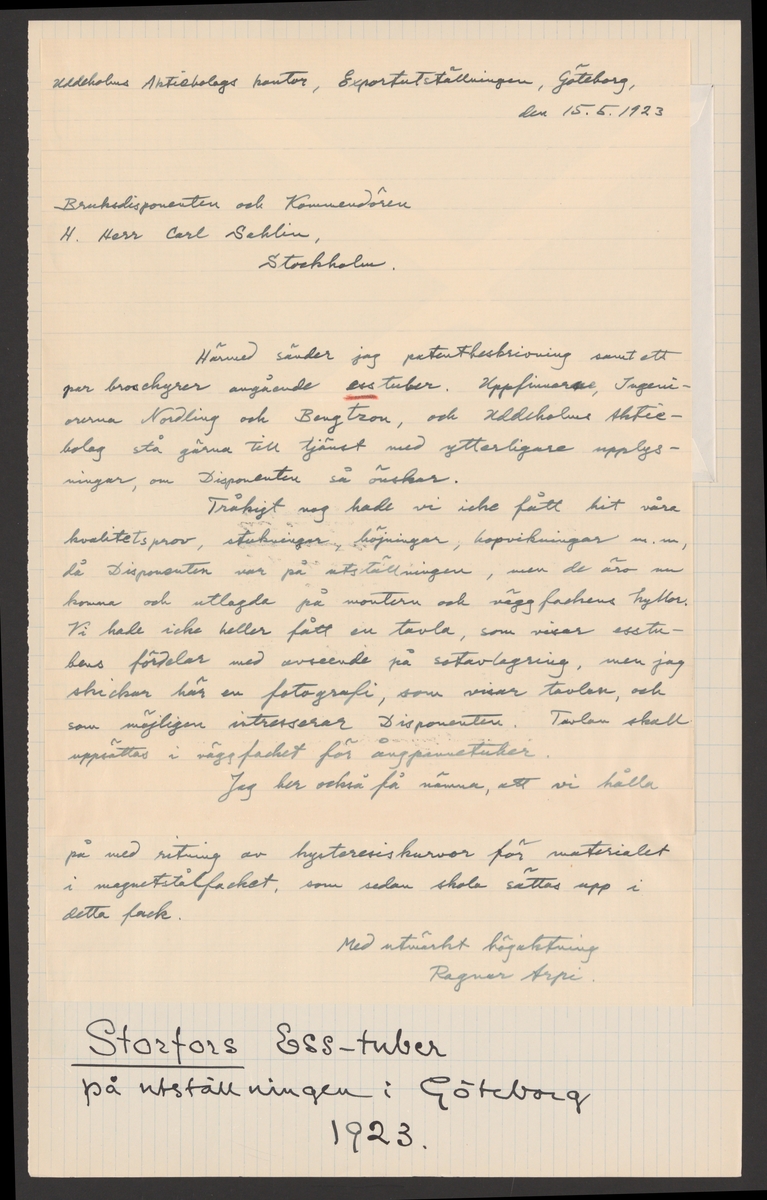 Uddeholms Aktiebolags kontor, Exportutställningen, Göteborg,
den 15.5.1923
Bruksdisponenten och Kommendören
H. Herr Carl Sahlin,
Stockholm.
Härmed sänder jag patentbeskrivning samt ett
par broschyrer angående esstuber. Uppfinnarne, Ingeni-
örerna Nordling och Bengtzon, och Uddeholms Aktie-
bolag stå gärna till tjänst med ytterligare upplys-
ningar, om Disponenten så önskar.
Tråkigt nog hade vi icke fått hit våra
kvalitetsprov, stukningar, böjningar, hopvikningar m.m,
då Disponenten var på utställningen, men de äro nu
komna och utlagda på montern och väggfackens hyllor.
Vi hade icke heller fått en tavla, som visar esstu-
bens fördelar med avseende på sotavlagring, men jag
skickar här en fotografi, som visar tavlan, och
som möjligen intresserar Disponenten. Tavlan skall
uppsättas i väggfacket för ångpannetuber.
Jag ber också få nämna, att vi hålla
på med ritning av hysteresiskurvor för materialet
i magnetstålfacket, som sedan skola sättas upp i
detta fack.
Med utmärkt högaktning
Ragnar Arpi.
Storfors Ess-tuber
på utställningen i Göteborg
1923.